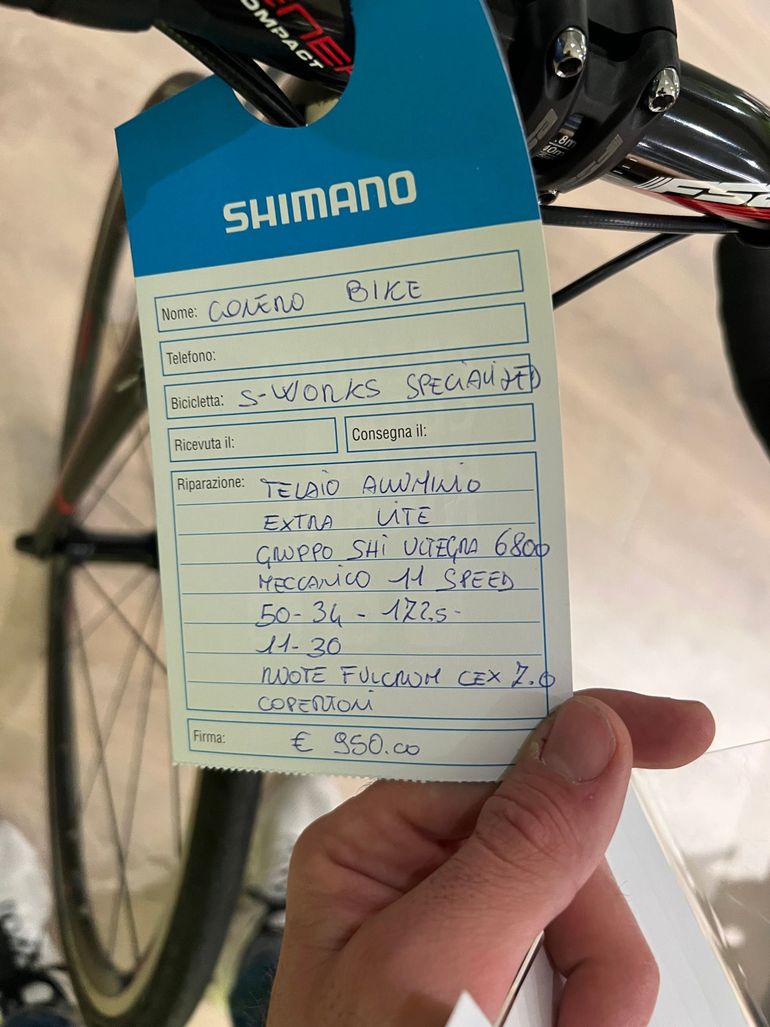 COMPACT
SHIMANO
FSA
Nome: CONERO BIKE
Telefono:
Bicicletta: S-WORKS SPECIALIZED
Ricevuta il:
Consegna il:
Riparazione: TELAIO ALLUMINIO
EXTRA LITE
GRUPPO SHI ULTEGRA 6800
MECCANICO 11 SPEED
50-34 - 172.5-
11-30
RUOTE FULCRUM CEX 7.0
COPERTONI
Firma: € 950.00